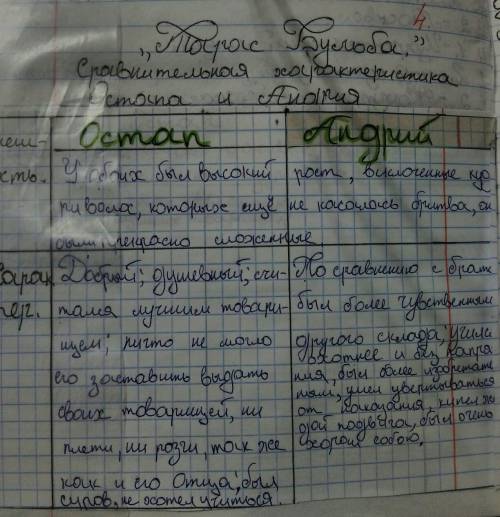 4
„Тарас Бульба."
Сравнительная характеристика
Остапа и Андрия
Остап Андрий
неш-
ость.
У обоих был высокий рост, всклоченные ку
ри волос, которых ещё не касалось бритва, он
были прекрасно сложенные
Харак
тер.
Добрый; душевный; счи-
тался лучшим товари-
щем; ничто не могло
его заставить выдать
своих товарищей, ни
плети, ни розги, так же
как и его Отца; был
суров, не хотел учиться.
По сравнению с брат
был более чувственным
другого склада; учился
охотнее и без напря
ния, был более изобретате
ным; умел увертываться
от наказания, кипел жа
дой подвига, был очень
хорош собою.